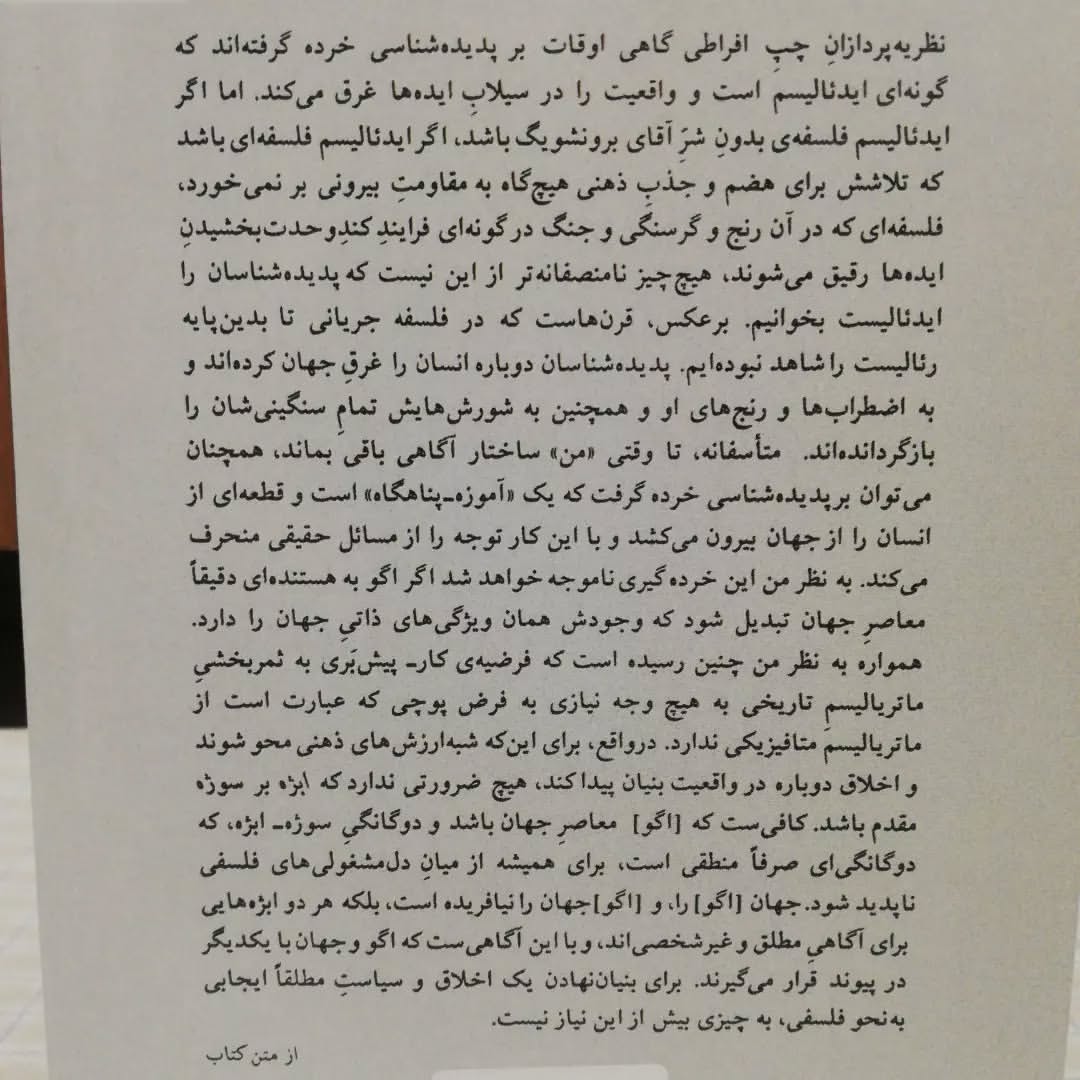 نظریه‌پردازانِ چپِ افراطی گاهی اوقات بر پدیده‌شناسی خرده گرفته‌اند که
گونه‌ای ایدئالیسم است و واقعیت را در سیلابِ ایده‌ها غرق می‌کند. اما اگر
ایدئالیسم فلسفه‌ی بدونِ شرِّ آقای برونشویگ باشد، اگر ایدئالیسم فلسفه‌ای باشد
که تلاشش برای هضم و جذبِ ذهنی هیچ‌گاه به مقاومتِ بیرونی بر نمی‌خورد،
فلسفه‌ای که در آن رنج و گرسنگی و جنگ در گونه‌ای فرایندِ کندِ وحدت‌بخشیدنِ
ایده‌ها رقیق می‌شوند، هیچ‌چیز نامنصفانه‌تر از این نیست که پدیده‌شناسان را
ایدئالیست بخوانیم. برعکس، قرن‌هاست که در فلسفه جریانی تا بدین‌پایه
رئالیست را شاهد نبوده‌ایم. پدیده‌شناسان دوباره انسان را غرقِ جهان کرده‌اند و
به اضطراب‌ها و رنج‌های او و همچنین به شورش‌هایش تمامِ سنگینی‌شان را
بازگردانده‌اند. متأسفانه، تا وقتی «من» ساختار آگاهی باقی بماند، همچنان
می‌توان بر پدیده‌شناسی خرده گرفت که یک «آموزه-پناهگاه» است و قطعه‌ای از
انسان را از جهان بیرون می‌کشد و با این کار توجه را از مسائل حقیقی منحرف
می‌کند. به نظر من این خرده‌گیری ناموجه خواهد شد اگر اگو به هستنده‌ای دقیقاً
معاصرِ جهان تبدیل شود که وجودش همان ویژگی‌های ذاتیِ جهان را دارد.
همواره به نظر من چنین رسیده است که فرضیه‌ی کار- پیش‌بَری به ثمربخشیِ
ماتریالیسمِ تاریخی به هیچ وجه نیازی به فرض پوچی که عبارت است از
ماتریالیسم متافیزیکی ندارد. درواقع، برای این‌که شبه‌ارزش‌های ذهنی محو شوند
و اخلاق دوباره در واقعیت بنیان پیدا کند، هیچ ضرورتی ندارد که ابژه بر سوژه
مقدم باشد. کافی‌ست که [اگو] معاصرِ جهان باشد و دوگانگیِ سوژه- ابژه، که
دوگانگی‌ای صرفاً منطقی است، برای همیشه از میانِ دل‌مشغولی‌های فلسفی
ناپدید شود. جهان [اگو] را، و [اگو] جهان را نیافریده است، بلکه هر دو ابژه‌هایی
برای آگاهیِ مطلق و غیرشخصی‌اند، و با این آگاهی‌ست که اگو و جهان با یکدیگر
در پیوند قرار می‌گیرند. برای بنیان‌نهادن یک اخلاق و سیاستِ مطلقاً ایجابی
به‌نحو فلسفی، به چیزی بیش از این نیاز نیست.
از متن کتاب